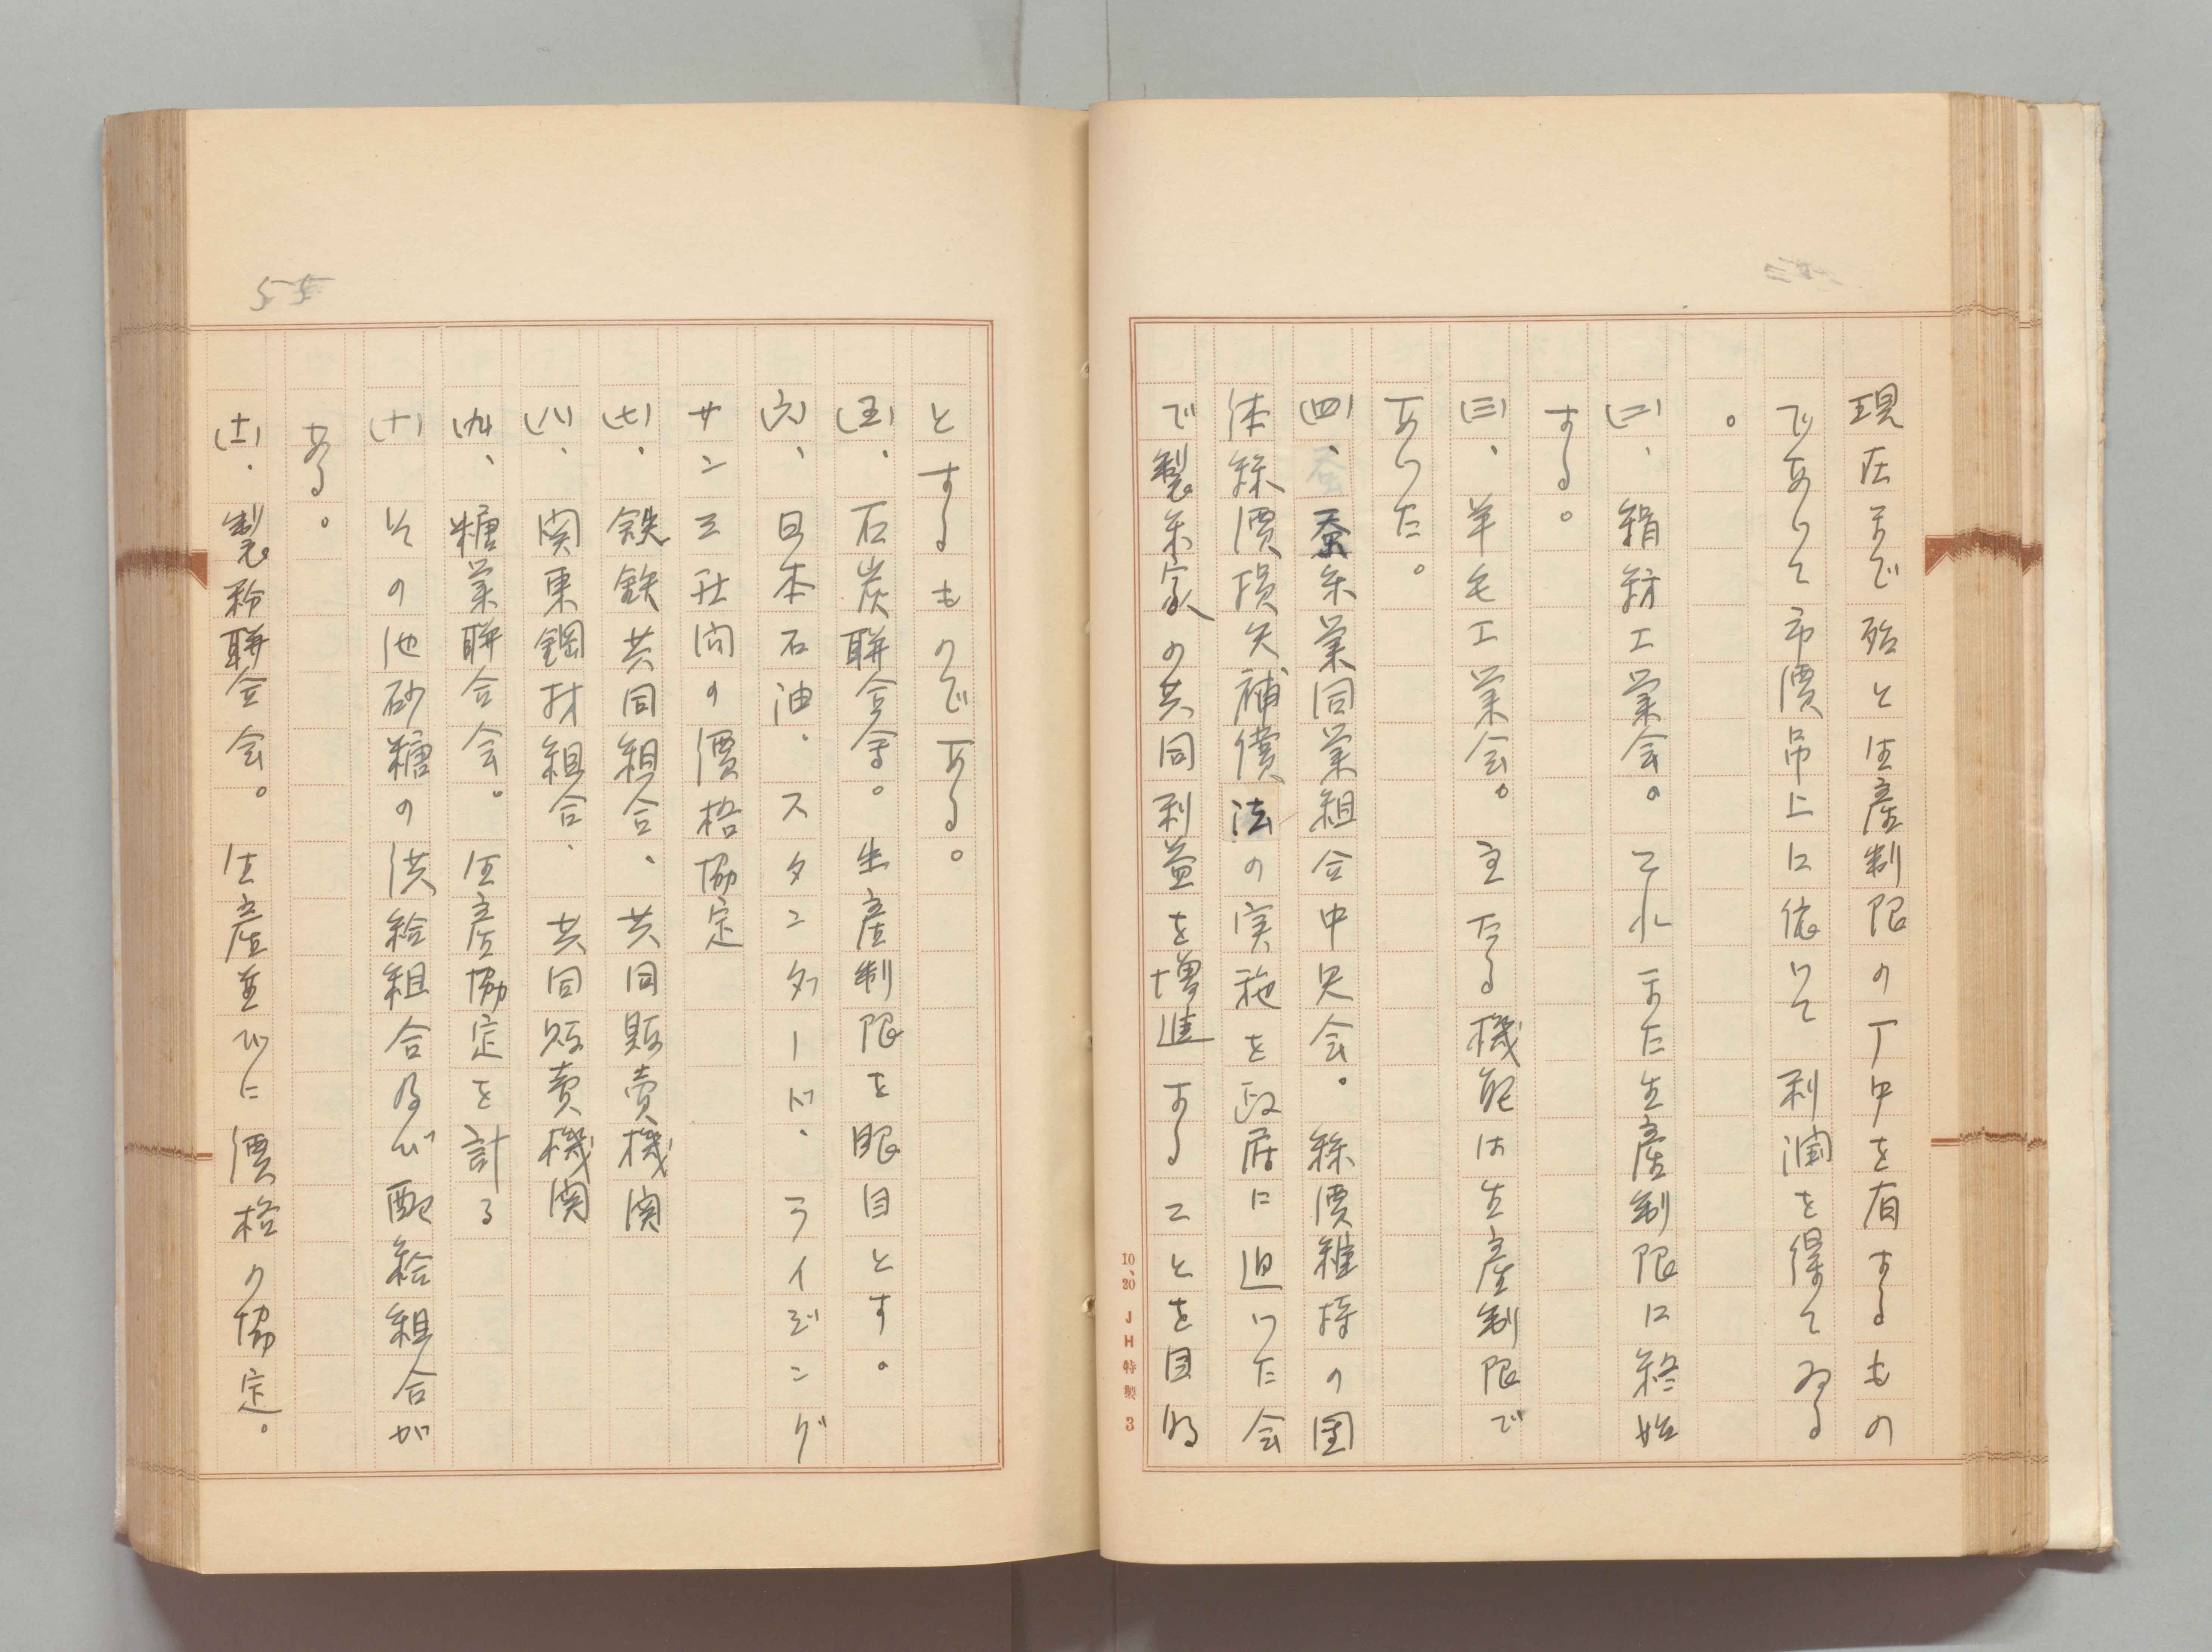 現在まで殆と生産制限の丁中を有するもの
でありて市價吊上に依りて利潤を得てゐる
。
(二)、絹紡工業会。これまた生産制限に終始
する。
(三)、羊毛工業会。主たる機能は生産制限で
ありた。
(四)、蚕糸業同業組合中央会。糸價維持の国
体糸價損失補償法の実施を政府に迫りた会
で製糸家の共同利益を増進することを目的
10、20 JH特製 3
55
とするものである。
(五)、石炭聯合会。生産制限を眼目とす。
(六)、日本石油、スタンダード、ライジング
サン三社間の價格協定
(七)、銑鉄共同組合、共同販賣機関
(八)、関東鋼材組合、共同販賣機関
(九)、糖業聯合会。生産協定を計る
(十) その他砂糖の供給組合及び配給組合が
ある。
(十一)、製粉聯合会。生産並びに價格の協定。